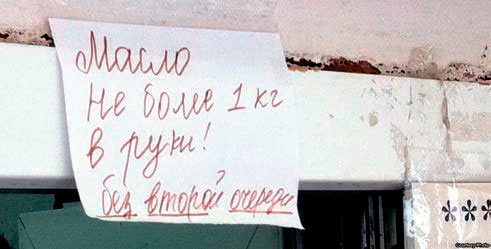 Масло
Не более 1 кг
в руки!
без второй очереди
***
Courtesy Photo